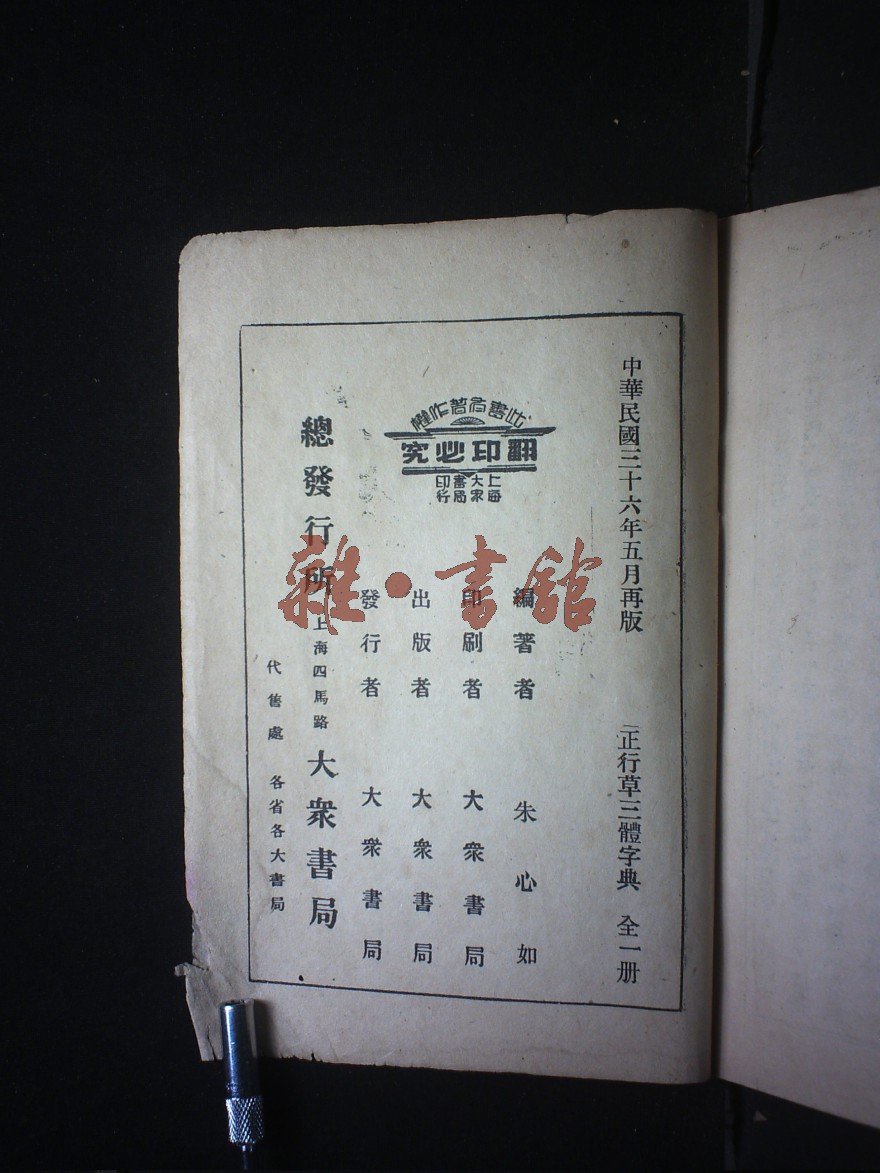 中華民國三十六年五月再版
正行草三體字典 全一册
此書有著作權
翻印必究
上海
大衆
書局
印行
編著者 朱心如
印刷者 大衆書局
出版者 大衆書局
發行者 大衆書局
總發行所 上海四馬路 大衆書局
代售處 各省各大書局
雜·書館